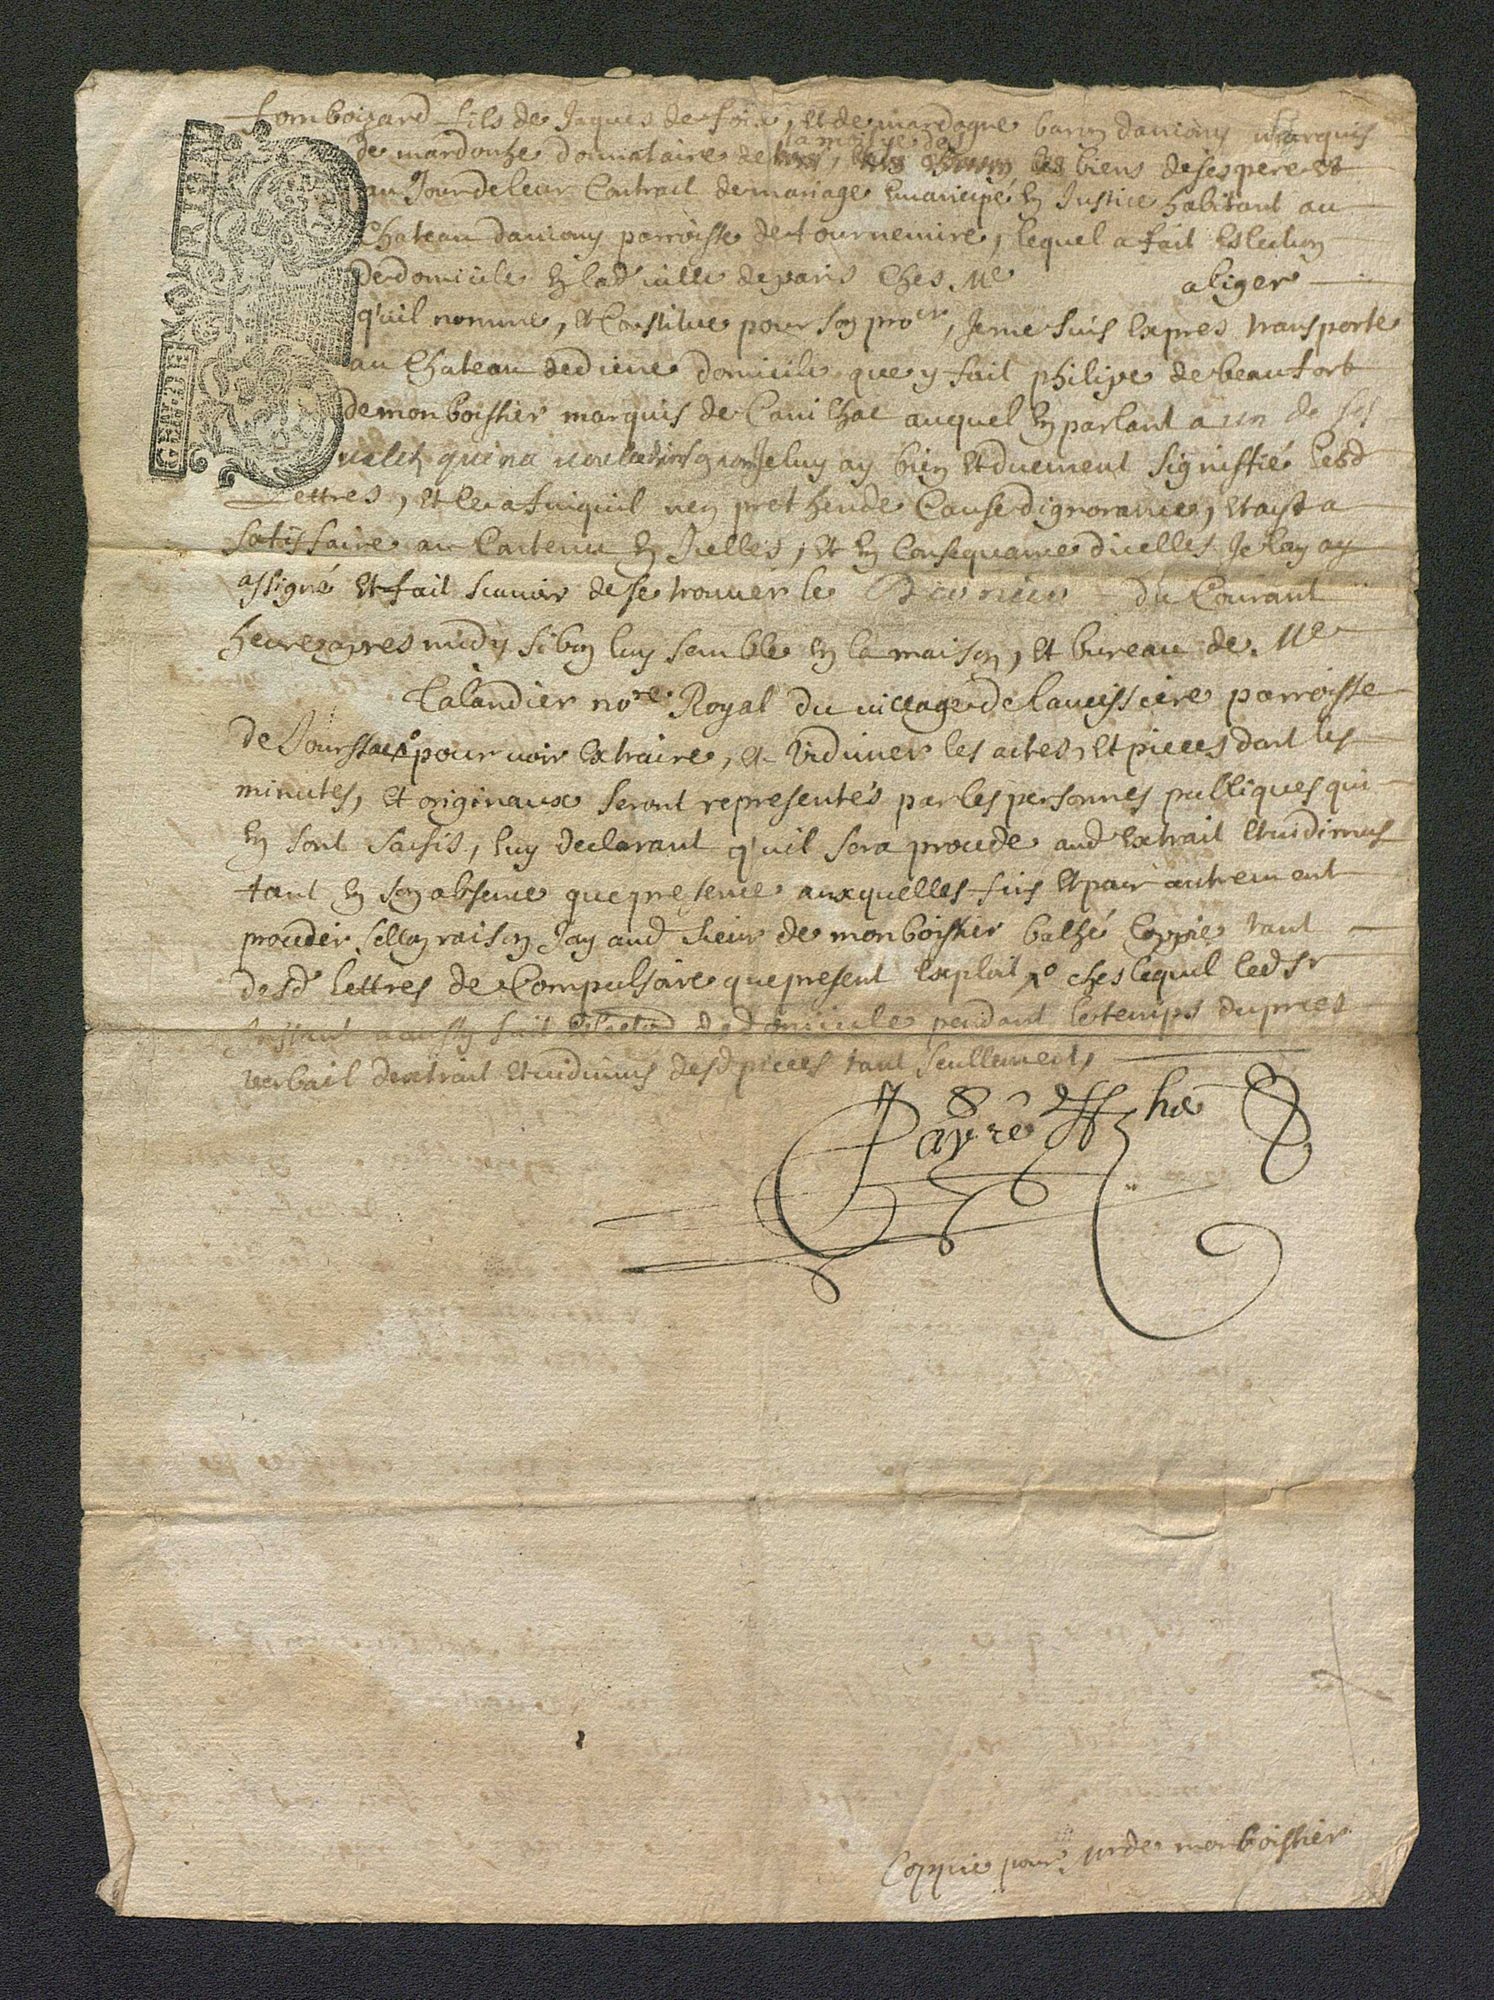 fomboizard fils de Jaques de foix, et de mardogne baron daniony marquis
la moitye des
de mardonhe donnataire de biens de ses pere et
au Jour de leur Contract de mariage emancipé en Justice habitant au
Chateau daniony parroisse de tournemire, lequel a fait eslection
de domicile en lad ville de paris Ches Me aliger
q'uil nomme, et Constitue pour son procr, Je me suis expres transporté
au Chateau de diene domicile que y fait philipe de beaufort
de monboissier marquis de Canilhac auquel en parlant a un de ses
valets qui na voulu dire son nom Je luy ay bien et duement signiffié lesd
Lettres, et ce a fin quil nen prethende Cause dignorance, et aist a
satisfaire au Contenu en Icelles, et en Consequance dicelles Je lay ay
assigné et fait scavoir de se trouver le du Courant
heure apres midy si bon luy semble en la maison, et bureau de Me
Talandier nore Royal du village de laveissiere parroisse
de Joursac pour voir extraire, et vidimer les actes, et pieces dont les
minutes, et originaux seront representés par les personnes publiques qui
en sont saisis, luy declarant q'uil sera procede aud extrait et vidimus
tant en son absence que presence auxquelles fins et pour autrement
proceder sellon raison Jay aud sieur de monboissier balhé Coppie tant
desd lettres de Compulsoire que present exploit ches lequel led sr
Instant a aussy fait eslection de domicile pendant le temps du proces
verbail dextrait et vidimus desd pieces tant seullement,
Coppie pour mr de monboissier